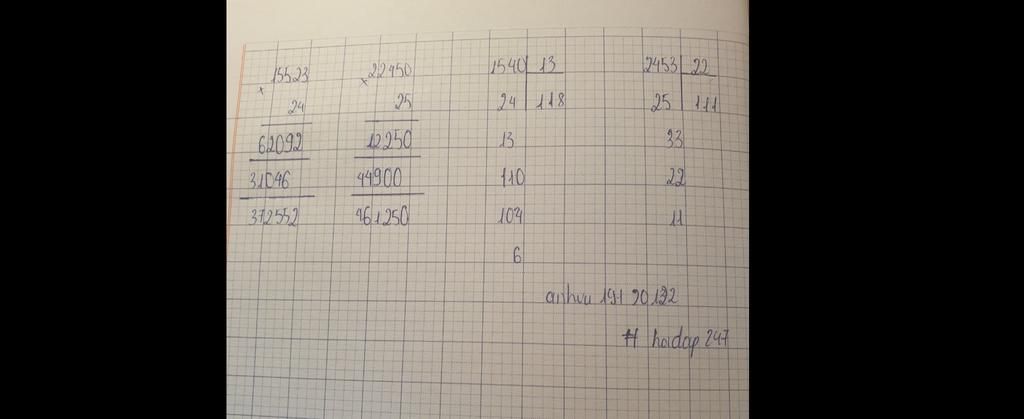 15523 x22450 1540 13 2453 22
x 24 25 24 118 25 111
62092 12250 13 33
31046 44900 110 22
372552 461250 104 11
6
# hoidap 247